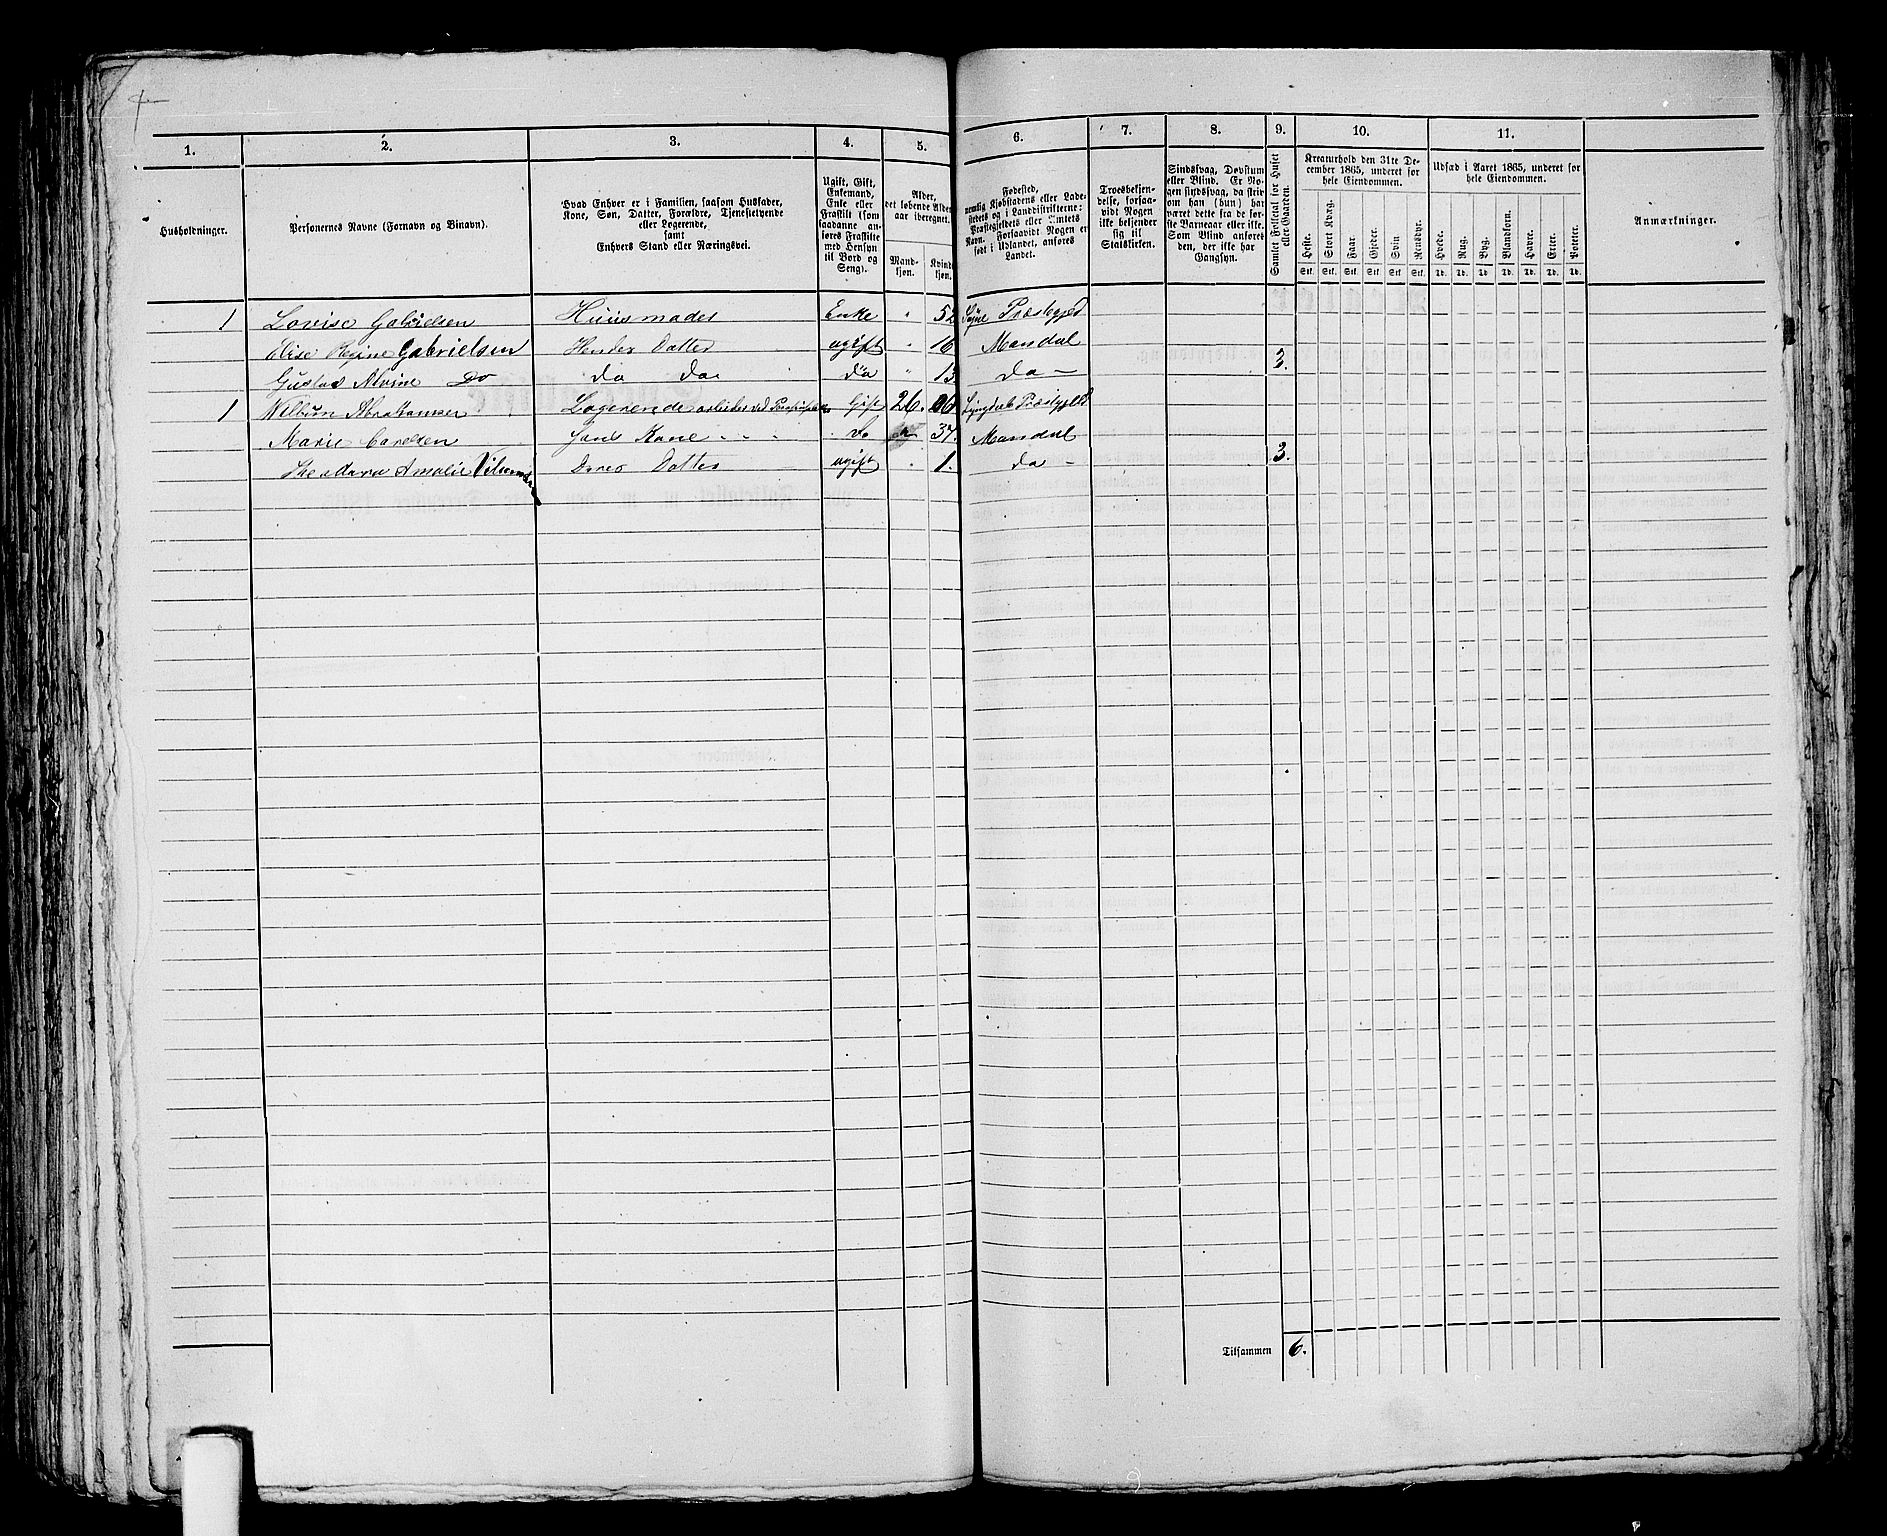 1. 2. 3. 4. 5. 6. 7. 8. 9. 10. 11.
Husholdninger.
Personernes Navne (Fornavn og Binavn).
Hvad Enhver er i Familien, saasom Husfader,
Kone, Søn, Datter, Forældre, Tjenestetyende
eller Logerende,
samt
Enhvers Stand eller Næringsvei.
Ugift, Gift,
Enkemand,
Enke eller
Fraskilt (som
saadanne an-
føres Fraskilte
med Hensyn
til Bord og
Seng).
Alder,
det løbende Alders-
aar iberegnet.
Mand-
kjøn.
Kvinde-
kjøn.
Fødested,
nemlig Kjøbstadens eller Lade-
stedets og i Landdistrikterne:
Præstegjeldets eller Amtets
Navn. Forsaavidt Nogen er
født i Udlandet, anføres
Landet.
Troesbekjen-
delse, forsaa-
vidt Nogen
ikke bekjender
sig til
Statskirken.
Sindssvag, Døvstum
eller Blind. Er No-
gen sindssvag, da skriv
om han (hun) har
været dette fra de før-
ste Barneaar eller ikke.
Som Blind anføres
den, der ikke har
Gangsyn.
Samlet Folketal for Huset
eller Gaarden.
Kreaturhold den 31te De-
cember 1865, underet for
hele Eiendommen.
Heste. Stort Kvæg. Faar. Gjeder. Svin Rensdyr.
Stk. Stk. Stk. Stk. Stk. Stk.
Udsæd i Aaret 1865, underet for
hele Eiendommen.
Hvede. Rug. Byg. Blandkorn. Havre. Erter. Poteter.
Td. Td. Td. Td. Td. Td. Td.
Anmærkninger.
1 Lovise Gabrielsen Huusmoder Enke " 52 Søgne Præstegjed
Elise Regine Gabrielsen Hendes Datter ugift " 16 Mandal
Gustav Alvine Do do do do " 13 do — 3.
1 Abrahamsen Logerende arbeider ved Gift 26. Lyngdals Præstegjeld
Marie Carelsen Hans Kone do 37. Mandal
Theodora Amalie Deres Datter ugift " 1. do - 3.
Tilsammen 6.